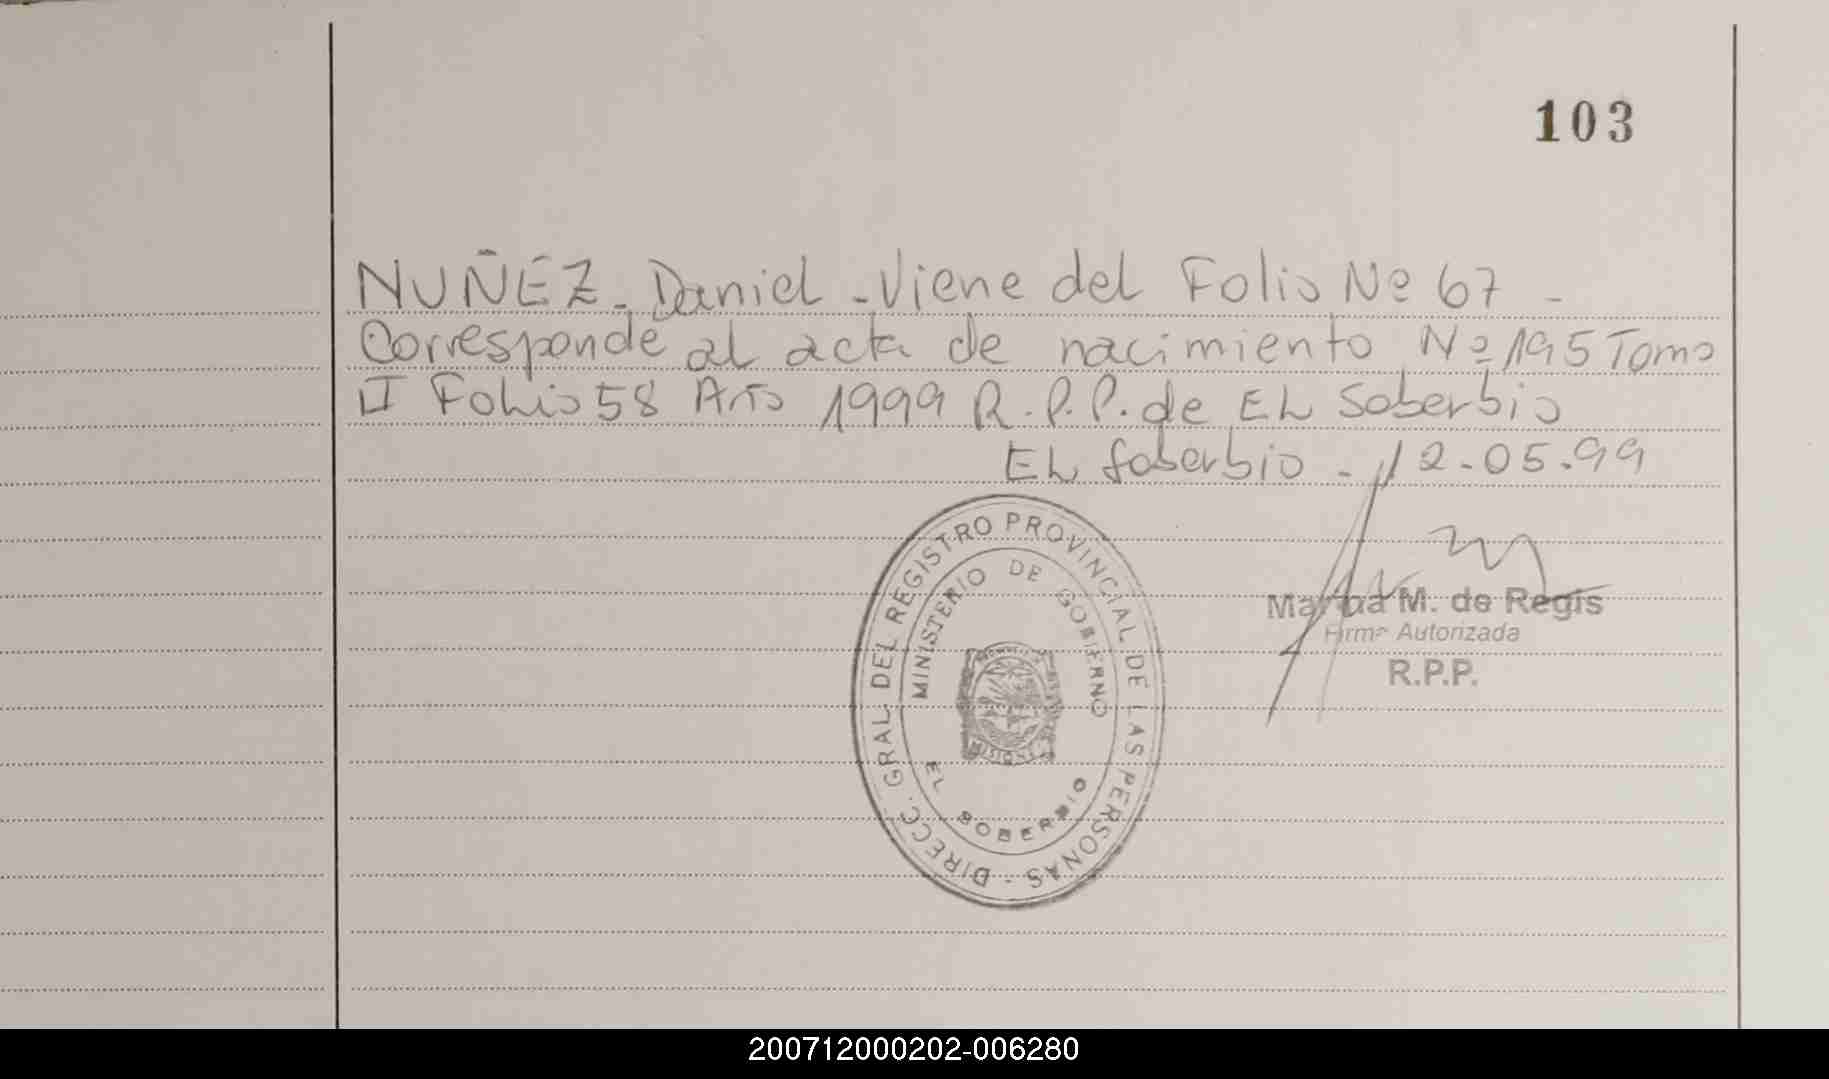 103
NUÑEZ - Daniel - Viene del Folio Nº 67 -
Corresponde al acta de nacimiento Nº 195 Tomo
II Folio 58 Año 1999 R.P.P. de EL Soberbio
EL Soberbio - 12-05-99
DIRECC. GRAL DEL REGISTRO PROVINCIAL DE LAS PERSONAS -
MINISTERIO DE GOBIERNO
MISIONES
EL SOBERBIO
M. de Regis
Firma Autorizada
R.P.P.
200712000202-006280